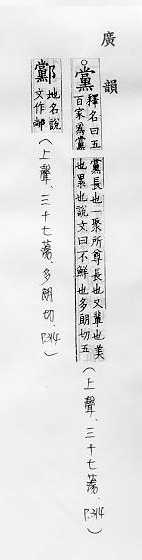 廣韻
黨 釋名曰五百家爲黨黨長也一聚所尊長也又輩也美也累也說文曰不鮮也多朗切五(上聲、三十七蕩、P.314)
鄺 地名說文作𨞰(上聲、三十七蕩、多朗切、P.314)